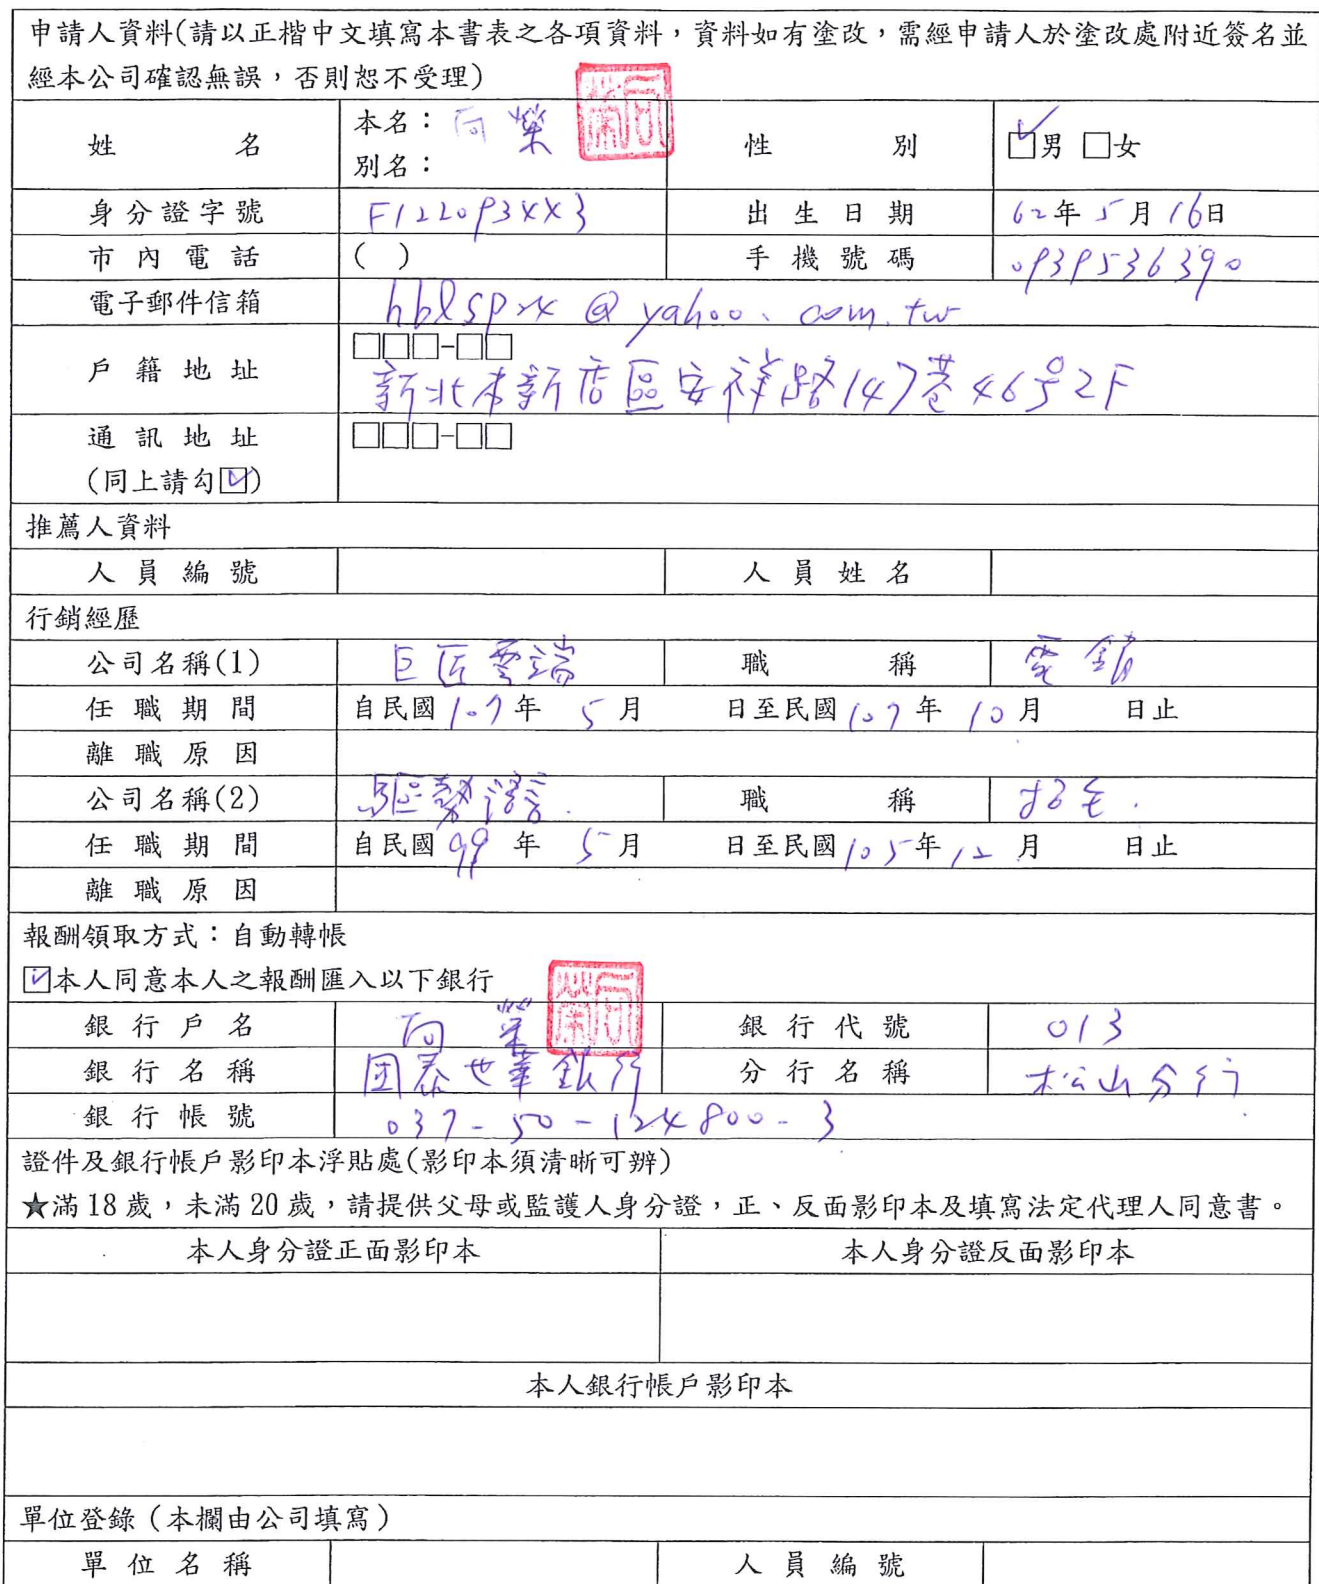 申請人資料(請以正楷中文填寫本書表之各項資料，資料如有塗改，需經申請人於塗改處附近簽名並
經本公司確認無誤，否則恕不受理)
姓 名 本名： 向榮 性 別 ☑男 □女
別名：
身分證字號 F122093443 出生日期 62年5月16日
市內電話 ( ) 手機號碼 0939536390
電子郵件信箱 @yahoo.com.tw
戶籍地址 □□□-□□
新北市新店區安祥路147巷46号2F
通訊地址 □□□-□□
(同上請勾☑)
推薦人資料
人員編號 人員姓名
行銷經歷
公司名稱(1) 巨匠雲端 職 稱 電銷
任職期間 自民國107年 5月 日至民國107年 10月 日止
離職原因
公司名稱(2) 驅勢 職 稱
任職期間 自民國99年 5月 日至民國105年12月 日止
離職原因
報酬領取方式：自動轉帳
☑本人同意本人之報酬匯入以下銀行
銀行戶名 向榮 銀行代號 013
銀行名稱 国泰世華銀行 分行名稱 松山分行
銀行帳號 037-50-124800-3
證件及銀行帳戶影印本浮貼處(影印本須清晰可辨)
★滿18歲，未滿20歲，請提供父母或監護人身分證，正、反面影印本及填寫法定代理人同意書。
本人身分證正面影印本 本人身分證反面影印本
本人銀行帳戶影印本
單位登錄（本欄由公司填寫）
單位名稱 人員編號